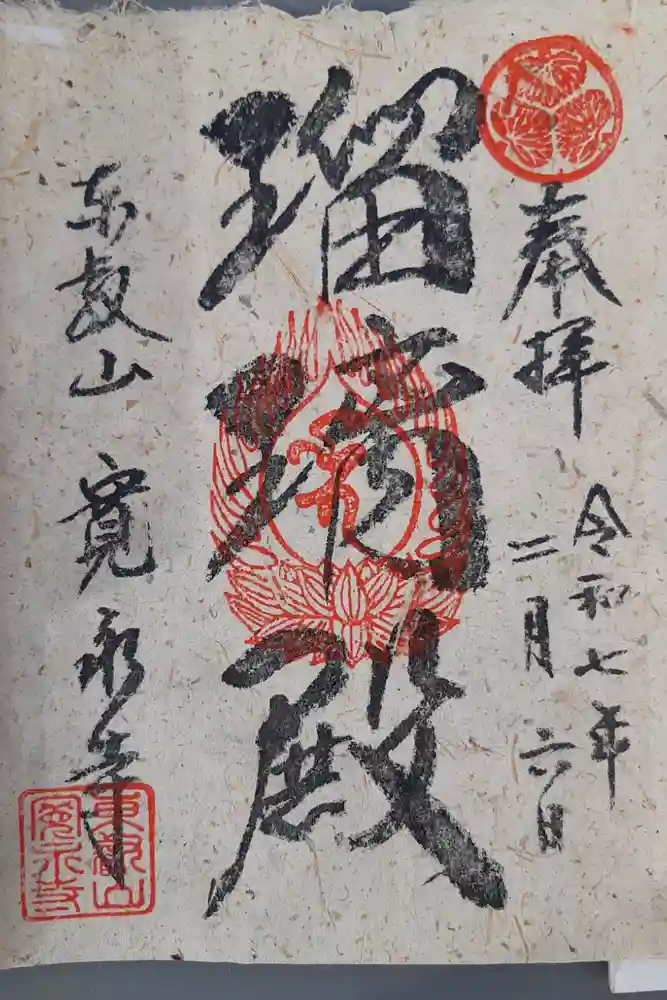 奉拝
令和七年
二月六日
瑠璃殿
東叡山 寛永寺
東叡山
寛永寺